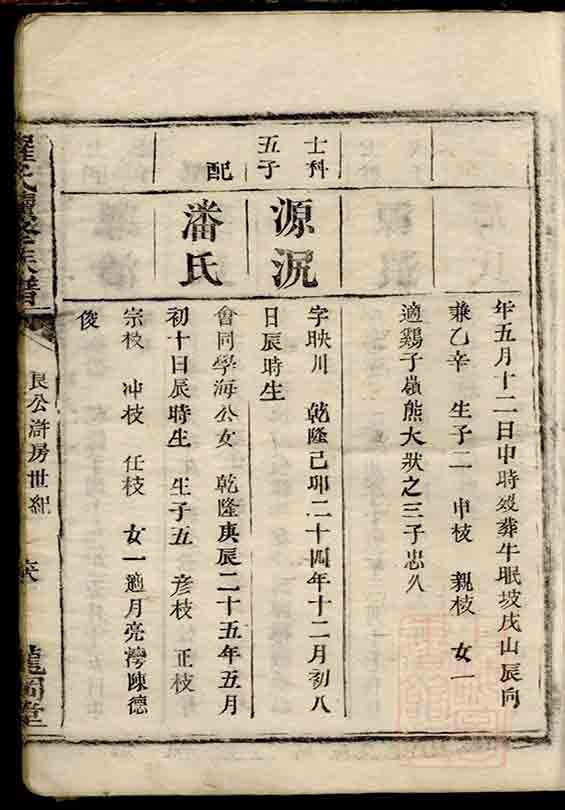 年五月十二日申時殁葬牛眠坡戌山辰向
兼乙辛 生子二 申枝 親枝 女一
適鷄子嶺熊大狀之三子忠久
士科
五子
源泥
字映川 乾隆己卯二十四年十二月初八
日辰時生
配
潘氏
會同學海公女 乾隆庚辰二十五年五月
初十日辰時生 生子五 彥枝 正枝
宗枝 冲枝 任枝 女一適月亮灣陳德
俊
羅氏續修族譜
良公滸房世紀